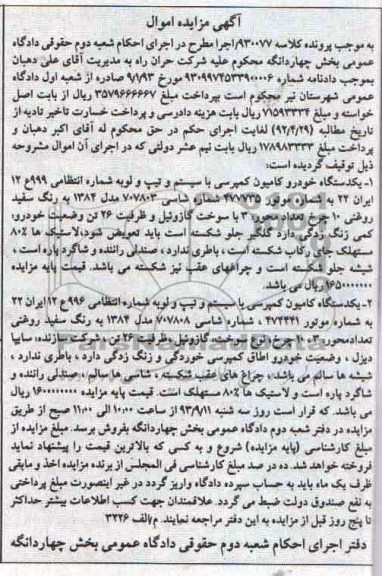 آگهی مزایده اموال
به موجب پرونده کلاسه ۹۳۰۰۷۷/اجرا مطرح در اجرای احکام شعبه دوم حقوقی دادگاه
عمومی بخش چهاردانگه محکوم علیه شرکت حران راه به مدیریت آقای علی دهبان
بموجب دادنامه شماره ۹۳۰۹۹۷۴۵۳۳۹۰۰۰۰۶ مورخ ۹/۱/۹۳ صادره از شعبه اول دادگاه
عمومی شهرستان تیر محکوم است بپرداخت مبلغ ۳۵۷۹۶۶۶۶۶۷ ریال از بابت اصل
خواسته و مبلغ ۷۱۵۹۳۳۳۴ ریال بابت هزینه دادرسی و پرداخت خسارت تاخیر تادیه از
تاریخ مطالبه (۹۲/۴/۲۹) لغایت اجرای حکم در حق محکوم له آقای اکبر دهبان و
پرداخت مبلغ ۱۷۸۹۸۳۳۳۳ ریال بابت نیم عشر دولتی که در اجرای آن اموال مشروحه
ذیل توقیف گردیده است:
۱- یکدستگاه خودرو کامیون کمپرسی با سیستم و تیپ و لوبه شماره انتظامی ۹۹۹ع ۱۲
ایران ۲۲ به شماره موتور ۴۷۷۲۳۵ شماره شاسی ۷۰۷۸۰۳ مدل ۱۳۸۴ به رنگ سفید
روغنی ۱۰ چرخ تعداد محور: ۳ با سوخت گازوئیل و ظرفیت ۲۶ تن وضعیت خودرو:
کمی زنگ زدگی دارد گلگیر جلو شکسته است باید تعویض شود، لاستیک ها ۸۰٪
مستهلک جای رکاب شکسته است ، باطری ندارد ، صندلی راننده و شاگرد پاره است ،
شیشه جلو شکسته است و چراغهای عقب نیز شکسته می باشد. قیمت پایه مزایده
۱۶۵۰۰۰۰۰۰۰ ریال می باشد.
۲- یکدستگاه کامیون کمپرسی با سیستم و تیپ و لوبه شماره انتظامی ۹۹۶ع ۱۲ ایران ۲۲
به شماره موتور ۴۷۴۴۴۱ ، شماره شاسی ۷۰۷۸۰۸ مدل ۱۳۸۴ به رنگ سفید روغنی
تعداد محور: ۳ ۱۰ چرخ نوع سوخت گازوئیل وظرفیت ۲۶ تن ، شرکت سازنده: سایپا
دیزل ، وضعیت خودرو اطاق کمپرسی خوردگی و زنگ زدگی دارد ، باطری ندارد ،
شیشه ها سالم می باشد ، چراغ های عقب شکسته ، شاسی ها سالم ، صندلی راننده و
شاگرد پاره است و لاستیک ها ۸۰٪ مستهلک است. قیمت پایه مزایده ۱۶۰۰۰۰۰۰۰۰ ریال
می باشد. که قرار است روز سه شنبه ۹۳/۹/۱۱ از ساعت ۱۰:۰۰ الی ۱۱:۰۰ صبح از طریق
مزایده در دفتر شعبه دوم دادگاه عمومی بخش چهاردانگه بفروش برسد. مبلغ مزایده از
مبلغ کارشناسی (پایه مزایده) شروع و به کسی که بالاترین قیمت را پیشنهاد نماید
فروخته خواهد شد. ده در صد مبلغ کارشناسی فی المجلس از برنده مزایده اخذ و مابقی
ظرف یک ماه باید به حساب سپرده دادگاه واریز گردد در غیر اینصورت مبلغ پرداختی
به نفع صندوق دولت ضبط می گردد. علاقمندان جهت کسب اطلاعات بیشتر حداکثر
تا پنج روز قبل از مزایده به این دفتر مراجعه نمایند. م/الف ۳۲۲۶
دفتر اجرای احکام شعبه دوم حقوقی دادگاه عمومی بخش چهاردانگه